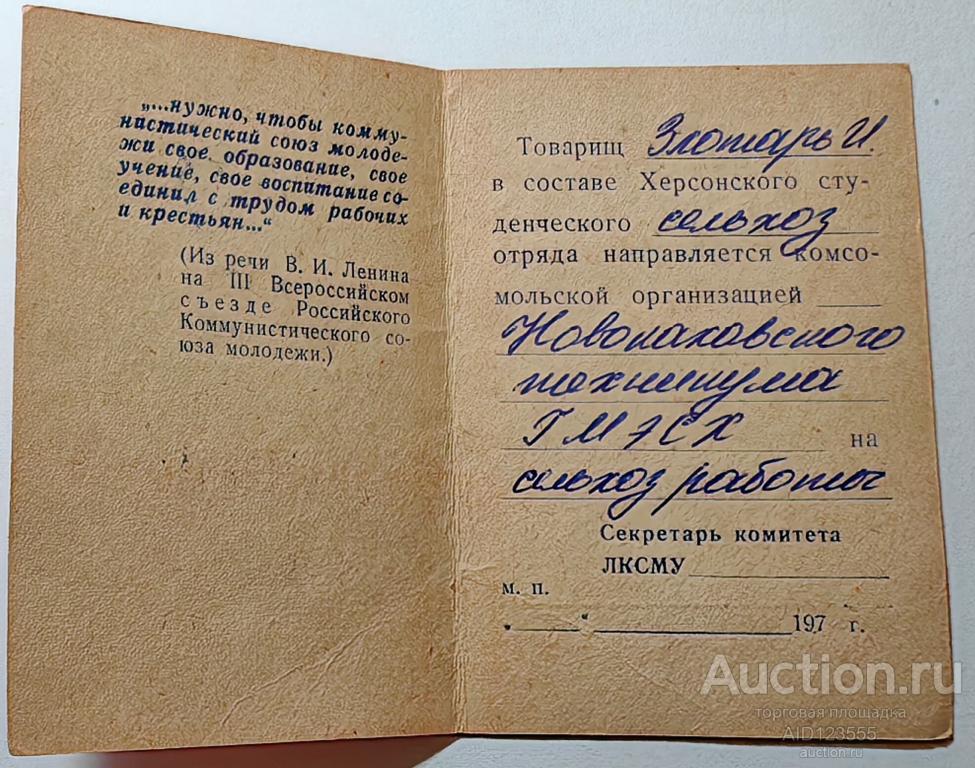 „...нужно, чтобы комму-
нистический союз молоде-
жи свое образование, свое
учение, свое воспитание со-
единил с трудом рабочих
и крестьян...“
(Из речи В. И. Ленина
на III Всероссийском
съезде Российского
Коммунистического со-
юза молодежи.)
Товарищ Злотарь И.
в составе Херсонского сту-
денческого сельхоз
отряда направляется комсо-
мольской организацией
Новокаховского
техникума
ГМЭСХ на
сельхоз работы
Секретарь комитета
ЛКСМУ
м. п.
„ “ 197 г.
Auction.ru
торговая площадка
AID123555
auction.ru